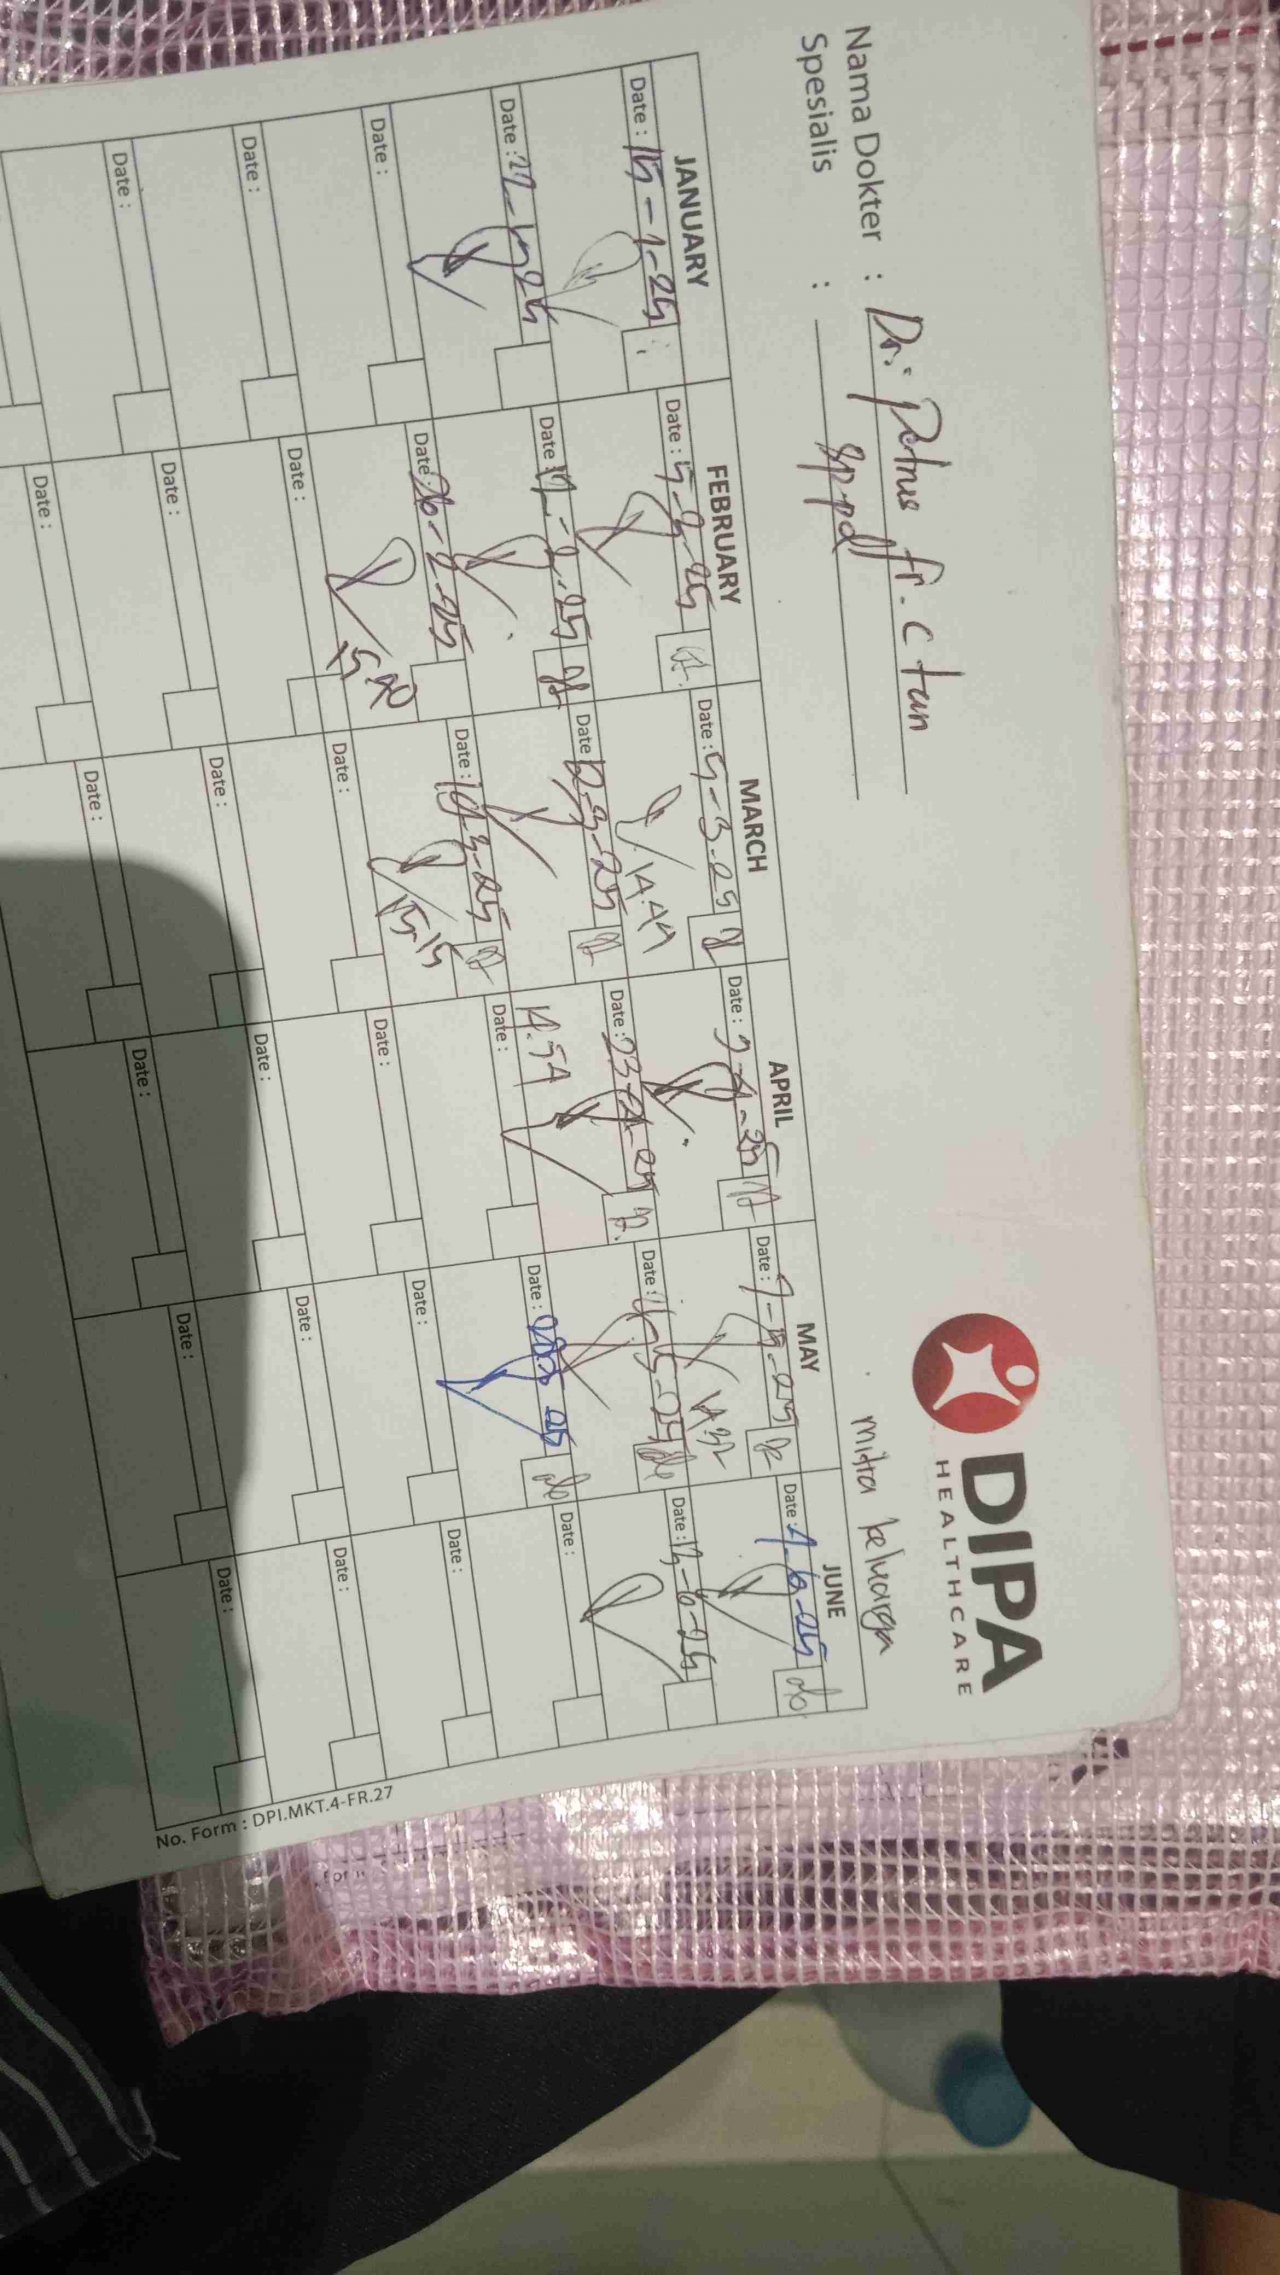 DIPA
HEALTHCARE
Nama Dokter : Dr. Petrus fr. C tan
Spesialis : Sppd
mitra keluarga
JANUARY FEBRUARY MARCH APRIL MAY JUNE
Date : 15-1-25 Date : 5-2-25 Date : 5-3-25 Date : 7-4-25 Date : 7-5-25 Date : 4-6-25
14.44 14.32
Date : 22-1-25 Date : 12-2-25 Date : 12-3-25 Date : 23-4-25 Date : Date : 13-6-25
14.54
Date : Date : 26-2-25 Date : 19-3-25 Date : Date : Date :
15.15
Date : Date : Date : Date : Date : Date :
Date : Date : Date : Date : Date : Date :
Date : Date : Date : Date : Date :
No. Form : DPI.MKT.4-FR.27